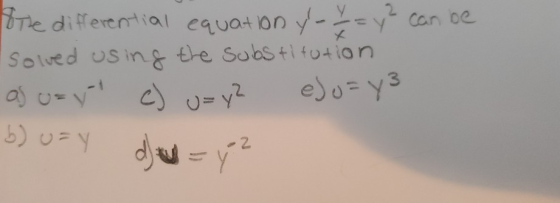 8The differential equation y' - y/x = y² can be
solved using the substitution
a) u = y⁻¹ c) u = y² e) u = y³
b) u = y d) u = y⁻²